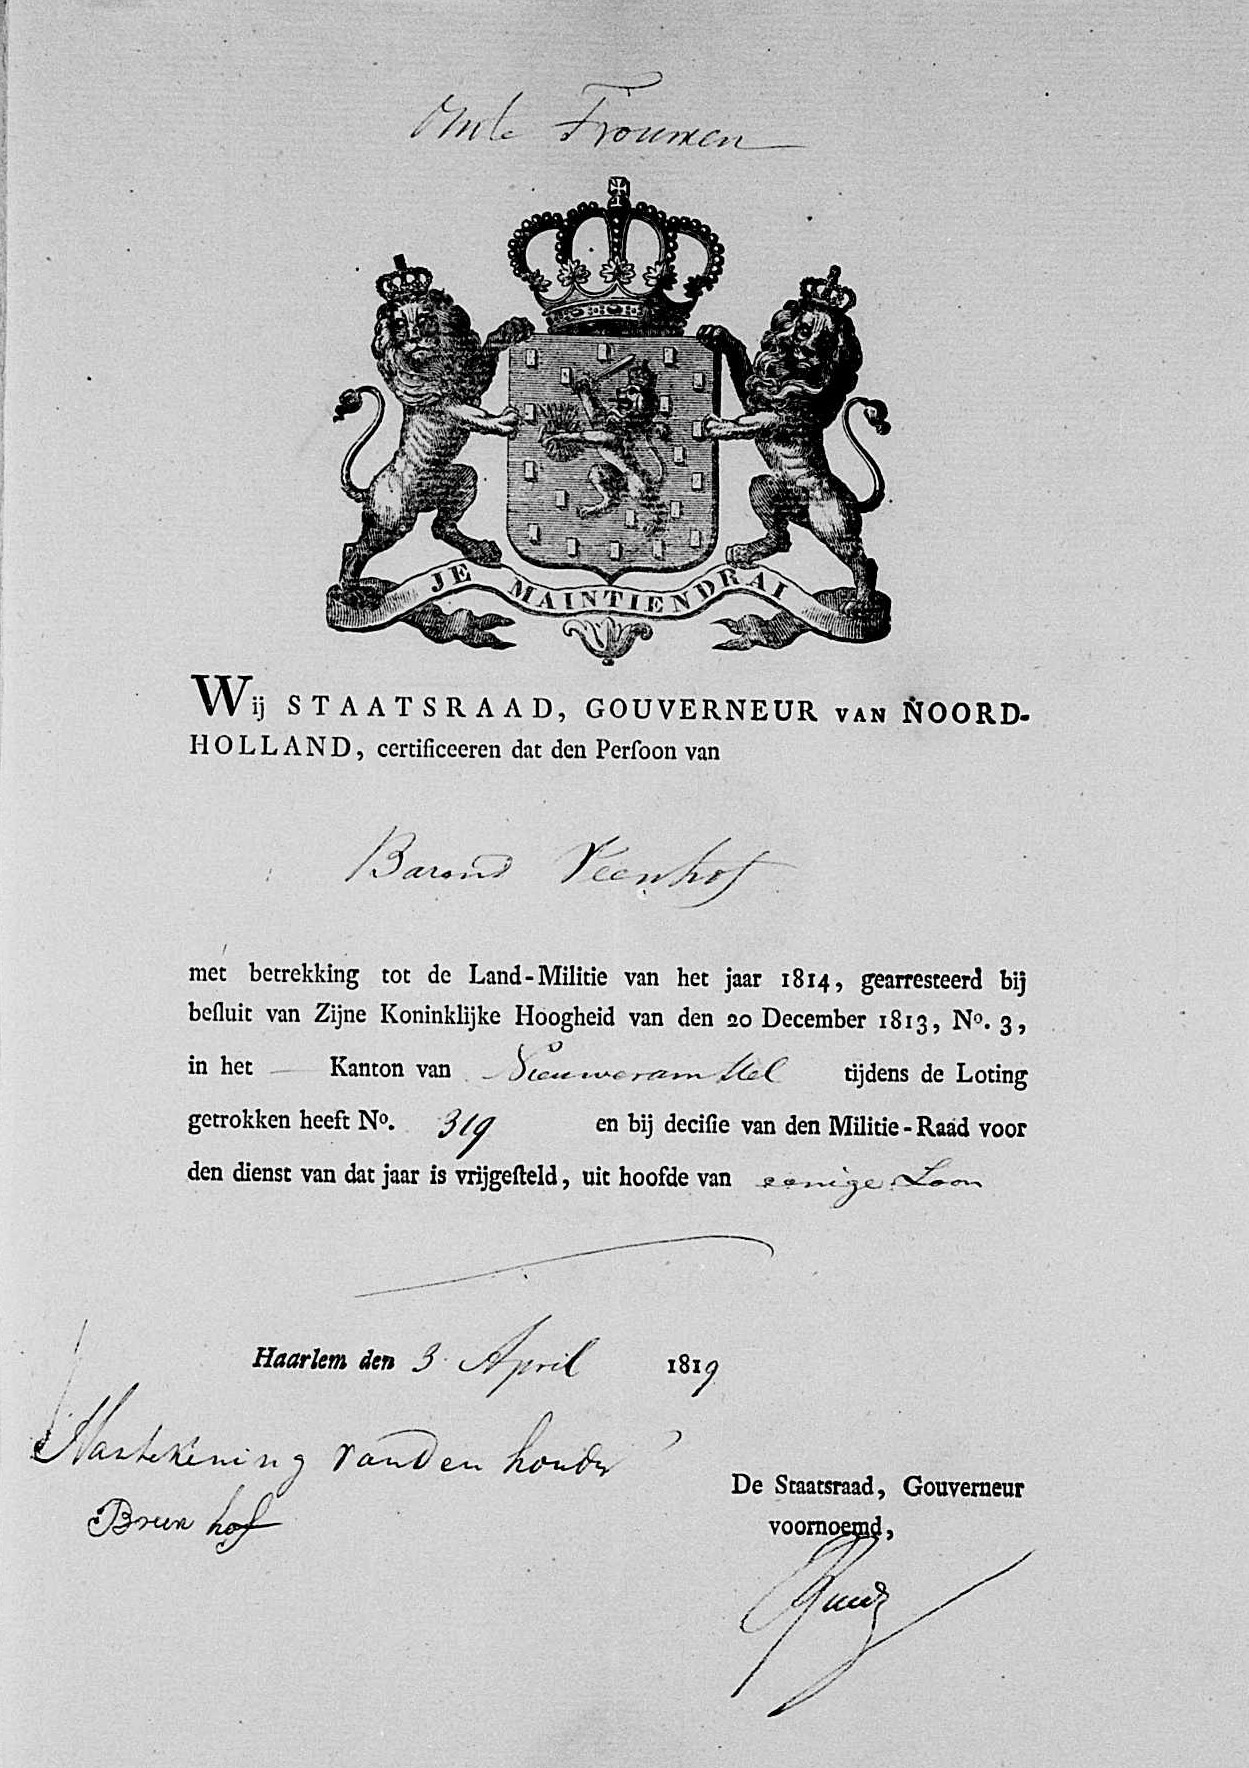 Om te Trouwen
JE MAINTIENDRAI
Wij STAATSRAAD, GOUVERNEUR VAN NOORD-
HOLLAND, certificeeren dat den Perſoon van
Barend Veenhof
met betrekking tot de Land-Militie van het jaar 1814, gearresteerd bij
beſluit van Zijne Koninklijke Hoogheid van den 20 December 1813, No. 3,
in het — Kanton van Nieuweramstel tijdens de Loting
getrokken heeft No. 319 en bij deciſie van den Militie-Raad voor
den dienst van dat jaar is vrijgeſteld, uit hoofde van eenige Zoon
Haarlem den 3 April 1819
Naamtekening van den houder
BVeenhof
De Staatsraad, Gouverneur
voornoemd,